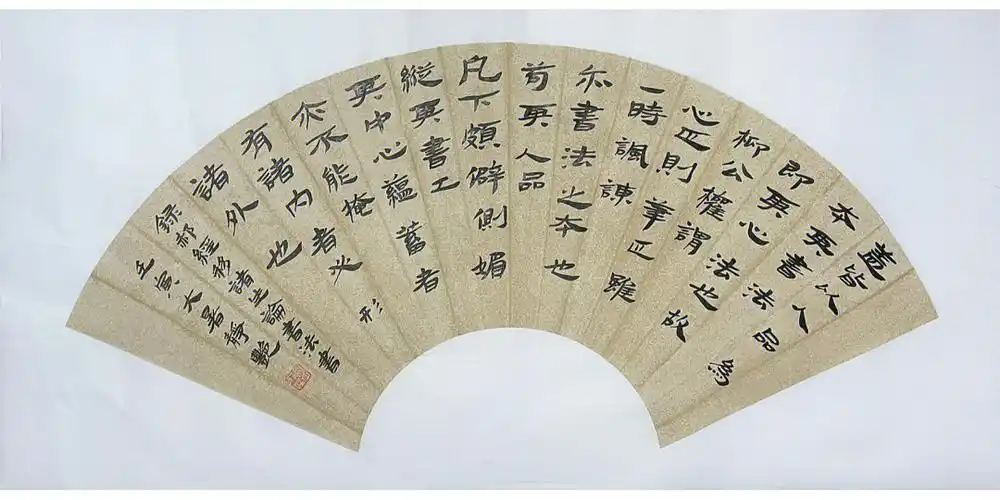 蓋皆以人品為
本其書法
即其心法也故
柳公權謂
心正則筆正雖
一時諷諫
亦書法之本也
苟其人品
凡下頗僻側媚
縱其書工
其中心蘊蓄者
亦不能掩
有諸內者必形
諸外也
錄郝經移諸生論書法書
壬寅大暑靜艷